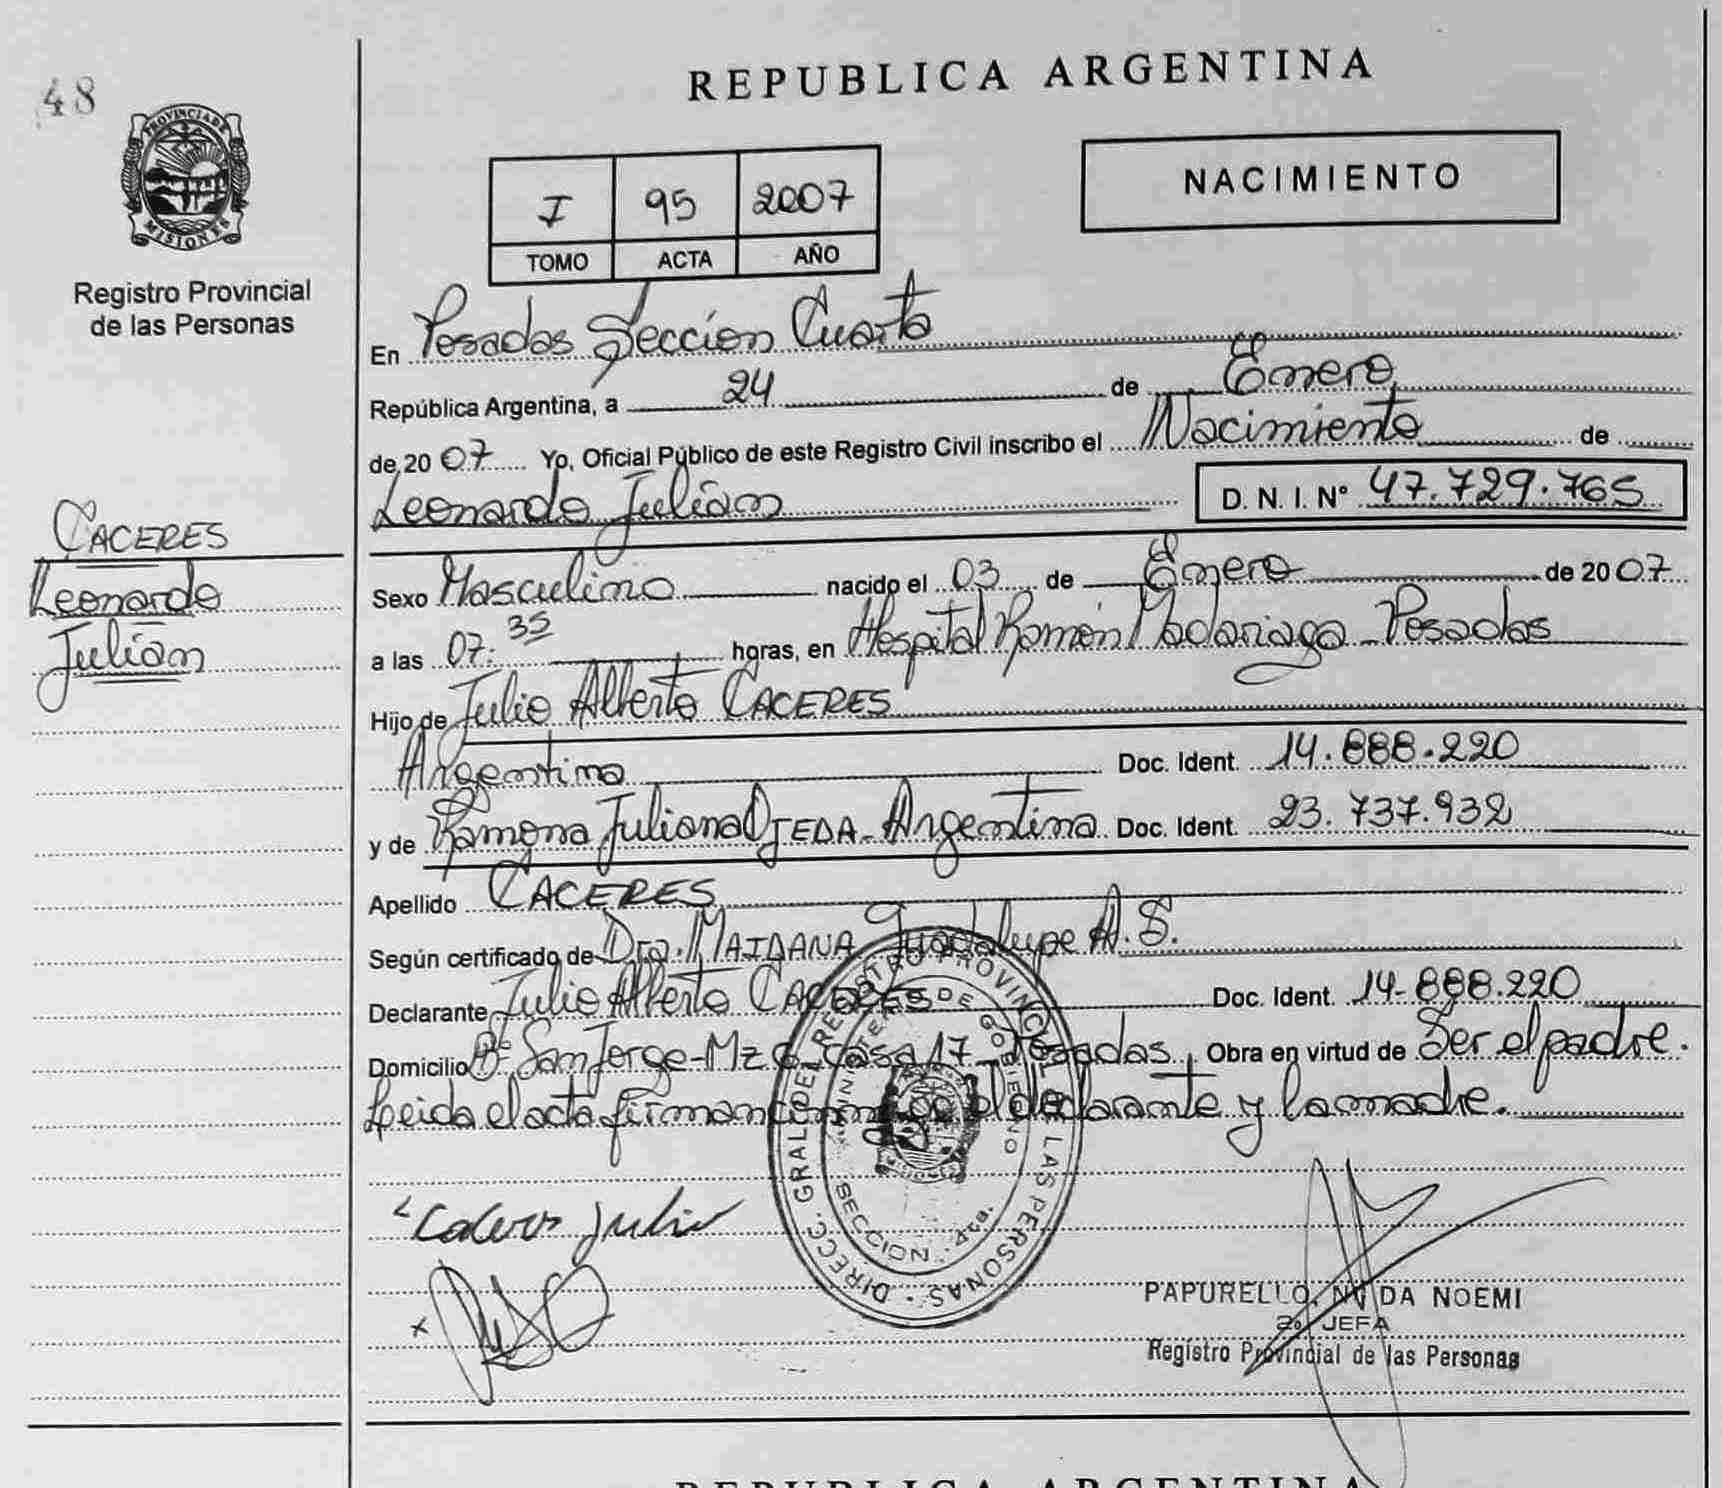 48
PROVINCIA DE
MISIONES
Registro Provincial
de las Personas
CACERES
Leonardo
Julián
REPUBLICA ARGENTINA
I 95 2007
TOMO ACTA AÑO
NACIMIENTO
En Posadas Sección Cuarta
República Argentina, a 24 de Enero
de 2007 Yo, Oficial Público de este Registro Civil inscribo el Nacimiento de
Leonardo Julián D. N. I. Nº 47.729.765
Sexo Masculino nacido el 03 de Enero de 2007
a las 07:35 horas, en Hospital Ramón Madariaga Posadas
Hijo de Julio Alberto CACERES
Argentino Doc. Ident. 14.888.220
y de Ramona Juliana OJEDA - Argentina Doc. Ident. 23.737.932
Apellido CACERES
Según certificado de Dra. MAIDANA Guadalupe A. S.
Declarante Julio Alberto CACERES Doc. Ident. 14-888.220
Domicilio Bº San Jorge - Mz 6 - Casa 17 - Posadas. Obra en virtud de Ser el padre.
Leida el acta firman conmigo el declarante y la madre.
DIRECC. GRAL DEL REGISTRO PROVINCIAL LAS PERSONAS
MINISTERIO DE GOBIERNO
SECCION 4ta.
Caceres Julio
PAPURELLO, DA NOEMI
2º JEFA
Registro Provincial de las Personas
REPUBLICA ARGENTINA